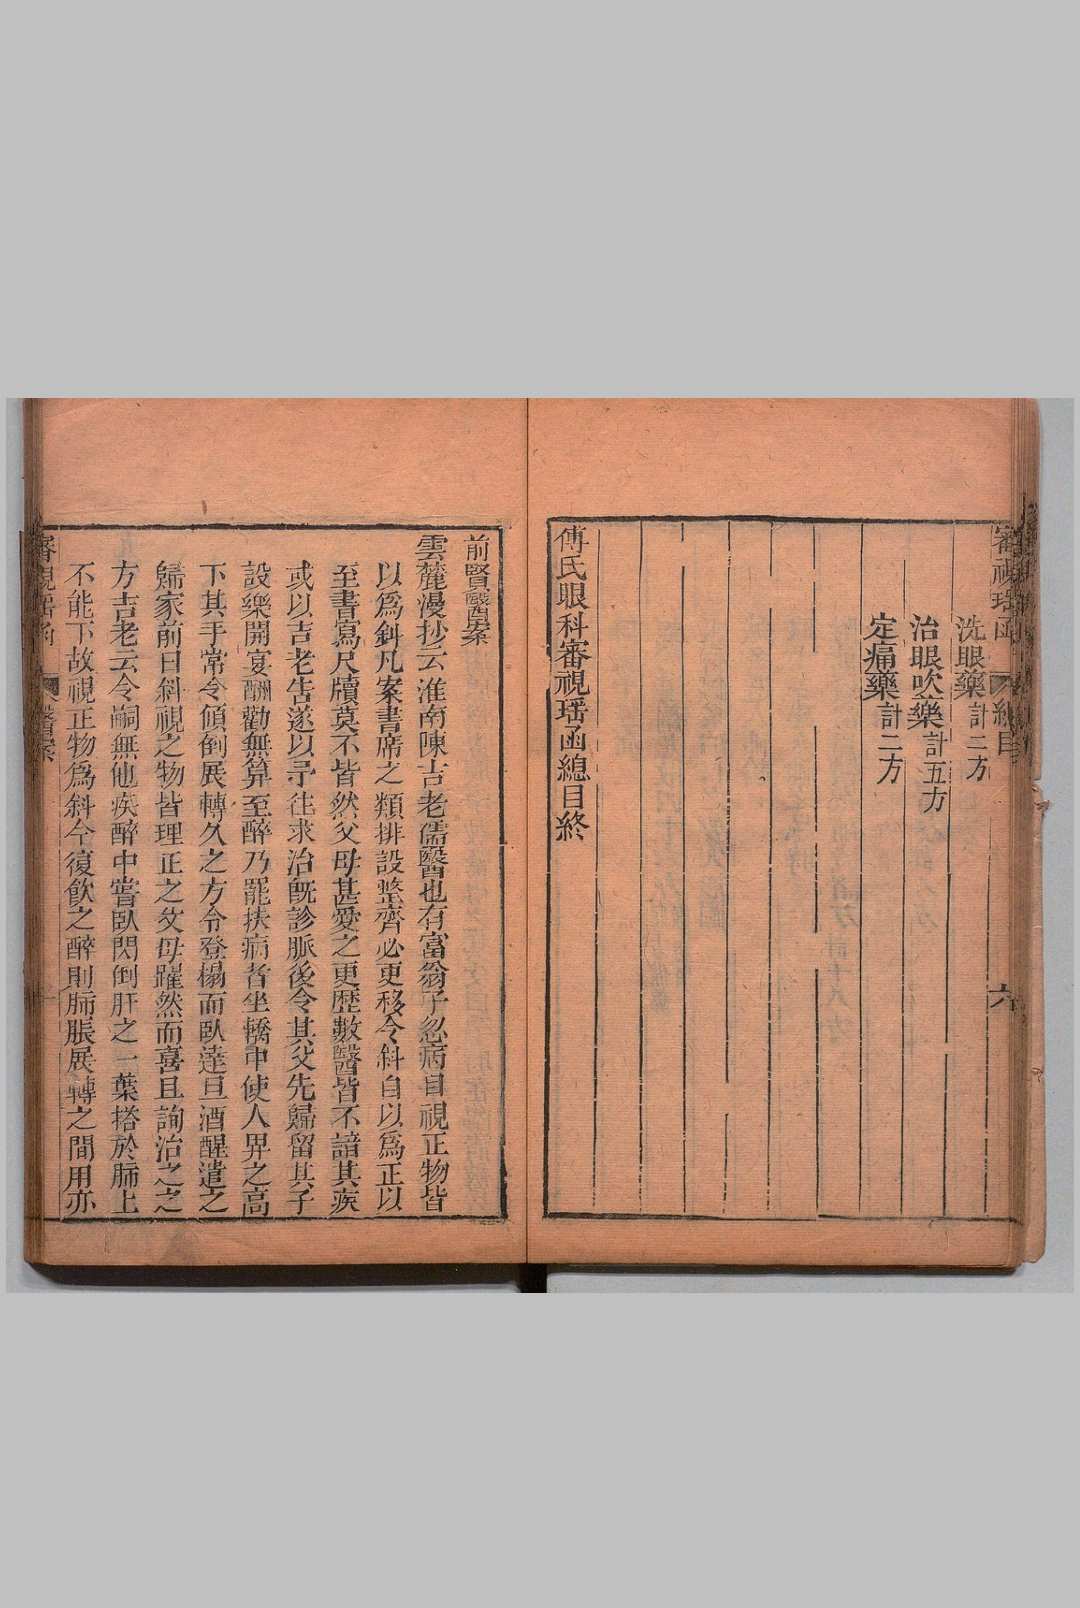 審視瑶函 總目 六
洗眼藥計二方
治眼吹藥計五方
定痛藥計二方
傅氏眼科審視瑶函總目終
前賢醫案
雲麓漫抄云淮南陳吉老儒醫也有富翁子忽病目視正物皆
以爲斜凡案書席之類排設整齊必更移令斜自以爲正以
至書寫尺牘莫不皆然父母甚愛之更歷數醫皆不諳其疾
或以吉老告遂以子往求治旣診脈後令其父先歸留其子
設樂開宴酬勸無算至醉乃罷扶病者坐轎中使人舁之高
下其手常令傾倒展轉久之方令登榻而臥達旦酒醒遣之
歸家前日斜視之物皆理正之父母躍然而喜且詢治之之
方吉老云令嗣無他疾醉中嘗臥閃倒肝之一葉搭於肺上
不能下故視正物爲斜今復飮之醉則肺脹展轉之間用亦
審視瑶函 醫案